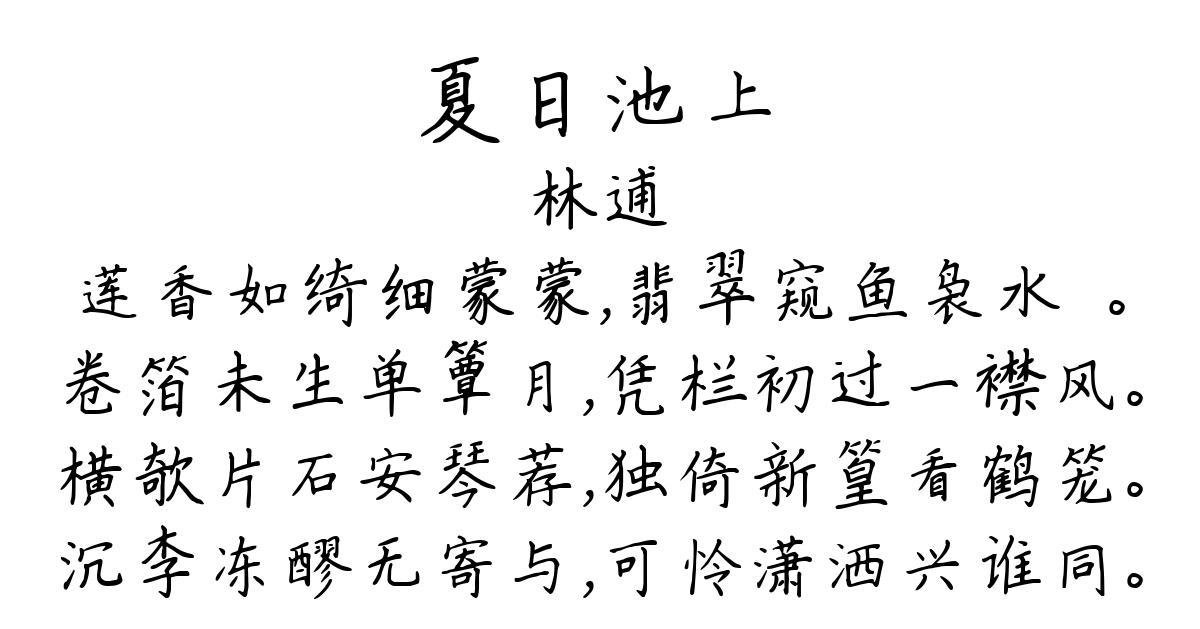 夏日池上
林逋
莲香如绮细蒙蒙,翡翠窥鱼袅水 。
卷箔未生单簟月,凭栏初过一襟风。
横欹片石安琴荐,独倚新篁看鹤笼。
沉李冻醪无寄与,可怜潇洒兴谁同。